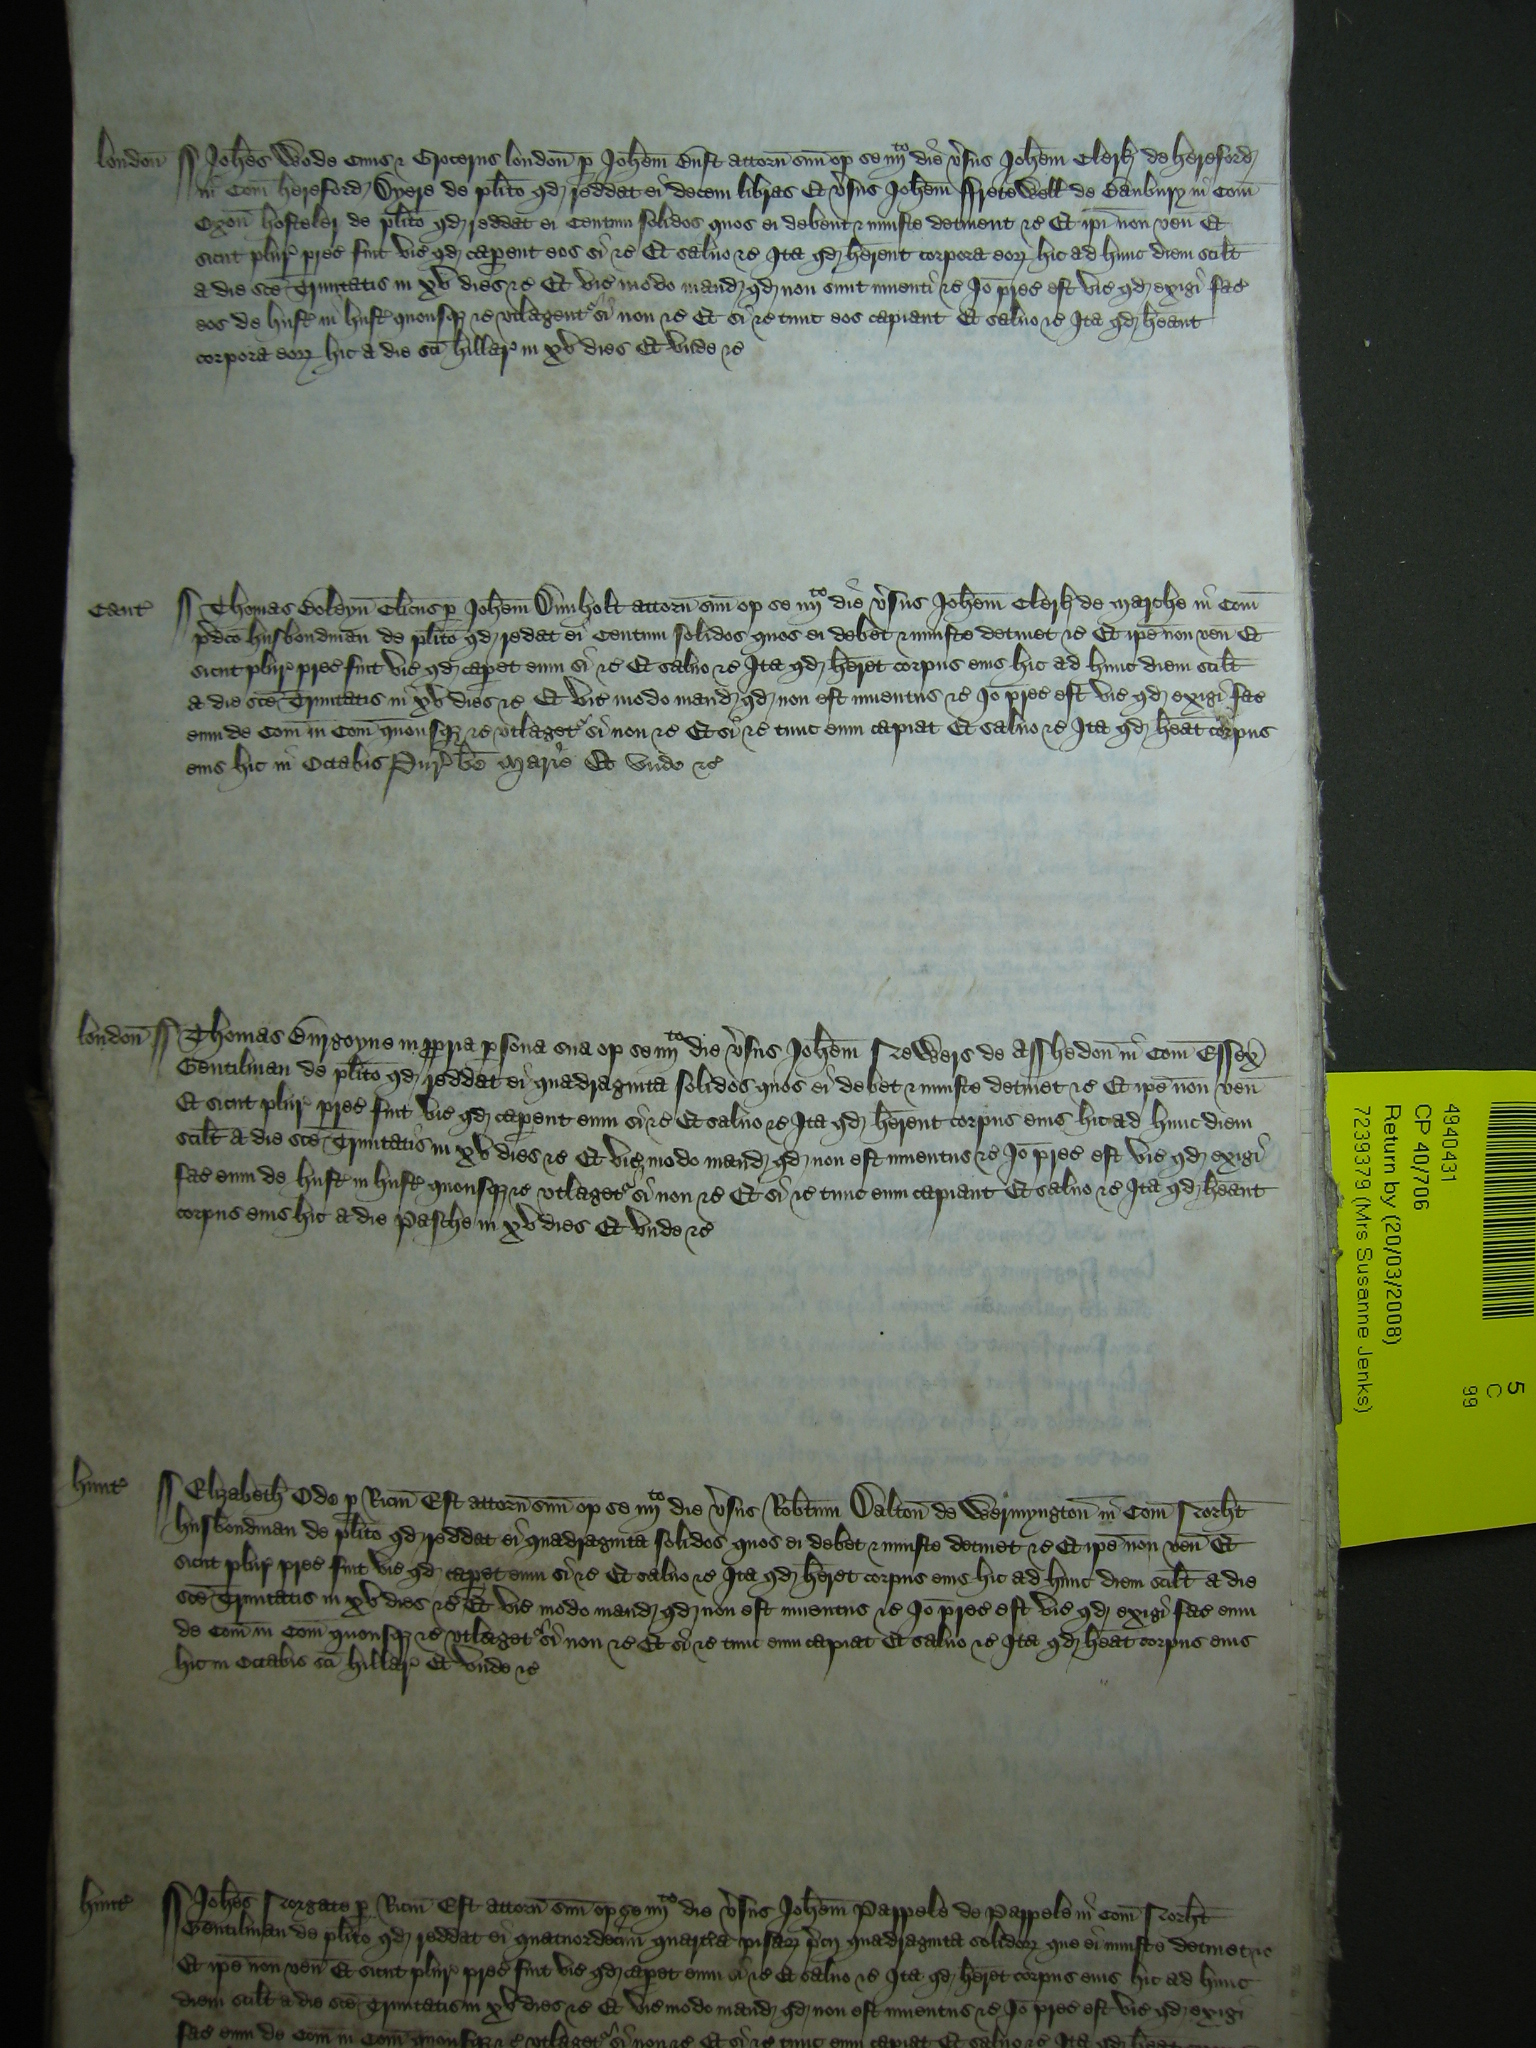 london̄ Joh̄es Wode Ciuis & Grocerus london̄ p Joh̄em Enst attorn̄ suū op se iiijto die v̄sus Joh̄em Clerk de hereford
in Com̄ hereford Dyere de pl̄ito qd reddat ei decem libras Et v̄sus Joh̄em ffretewell de Banbury in Com̄
Oxon̄ hosteler de pl̄ito qd reddat ei Centum solidos quos ei debent & iniuste detinent &c Et ip̄i non ven̄ Et
sicut plur' prec̄ fuit vic̄ qd caperent eos si &c Et saluo &c Ita qd h̄erent corpora eoꝝ hic ad hunc diem scilt̄
a die sc̄e Trinitatis in xv dies &c Et vic̄ modo mand qd non sunt inuenti &c Jo prec̄ est vic̄ qd exigi fac̄
eos de hust' in hust' quousqꝫ &c vtlagent' si non &c Et si &c tunc eos capiant Et saluo &c Ita qd h̄eant
corpora eoꝝ hic a die sc̄i hillar' in xv dies Et vnde &c
Canc' Thomas Boleyn̄ Cl̄icus p Joh̄em Dunholt attorn̄ suū op se iiijto die v̄sus Joh̄em Clerk de Marche in Com̄
p̄dc̄o husbondman de pl̄ito qd redat ei Centum solidos quos ei debet & iniuste detinet &c Et ip̄e non ven̄ Et
sicut plur' prec̄ fuit vic̄ qd caperet eum si &c Et saluo &c Ita qd h̄eret corpus eius hic ad hunc diem scilt̄
a die sc̄e Trinitatis in xv dies &c Et vic̄ modo mand qd non est inuentus &c Jo prec̄ est vic̄ qd exigi fac̄
eum de Com̄ in Com̄ quousqꝫ &c vtlaget' si non &c Et si &c tunc eum capiat Et saluo &c Ita qd h̄eat corpus
eius hic in Octabis Pur' b̄e Marie Et vnde &c
london̄ Thomas Burgoyne in ppria psona sua op se iiijto die v̄sus Joh̄em Newers de Asshedon̄ in Com̄ Essex
Gentilman de pl̄ito qd reddat ei quadraginta solidos quos ei debet & iniuste detinet &c Et ip̄e non ven̄
Et sicut plur' prec̄ fuit vic̄ qd caperent eum si &c Et saluo &c Ita qd h̄erent corpus eius hic ad hunc diem
scilt̄ a die sc̄e Trinitatis in xv dies &c Et vic̄ modo mand qd non est inuentus &c Jo prec̄ est vic̄ qd exigi
fac̄ eum de hust' in hust' quousqꝫ &c vtlaget' si non &c Et si &c tunc eum capiant Et saluo &c Ita qd h̄eant
corpus eius hic a die Pasche in xv dies Et vnde &c
hunt' Elizabeth Ode p Ricm̄ Est attorn̄ suū op se iiijto die v̄sus Robtum Dalton̄ de Wermyngton̄ in Com̄ Norht̄
husbondman de pl̄ito qd reddat ei quadraginta solidos quos ei debet & iniuste detinet &c Et ip̄e non ven̄ Et
sicut plur' prec̄ fuit vic̄ qd caperet eum si &c Et saluo &c Ita qd h̄eret corpus eius hic ad hunc diem scilt̄ a die
sc̄e Trinitatis in xv dies &c Et vic̄ modo mand qd non est inuentus &c Jo prec̄ est vic̄ qd exigi fac̄ eum
de Com̄ in Com̄ quousqꝫ &c vtlaget' si non &c Et si &c tunc eum capiat Et saluo &c Ita qd h̄eat corpus eius
hic in Octabis sc̄i hillar' Et vnde &c
hunt' Joh̄es Norgate p Ricm̄ Est attorn̄ suū op se iiijto die v̄sus Joh̄em Pappele de Pappele in Com̄ Norht̄
Gentilman de pl̄ito qd reddat ei quatuordecim quarteria pisaꝝ p̄cij quadraginta solidoꝝ que ei iniuste detinet &c
Et ip̄e non ven̄ Et sicut plur' prec̄ fuit vic̄ qd caperet eum si &c Et saluo &c Ita qd h̄eret corpus eius hic ad hunc
diem scilt̄ a die sc̄e Trinitatis in xv dies &c Et vic̄ modo mand qd non est inuentus &c Jo prec̄ est vic̄ qd exigi
fac̄ eum de Com̄ in Com̄ quousqꝫ &c vtlaget' si non &c Et si &c tunc eum capiat Et saluo &c Ita qd h̄eat
4940431
CP 40/706
Return by (20/03/2008)
7239379 (Mrs Susanne Jenks)
5
C
99